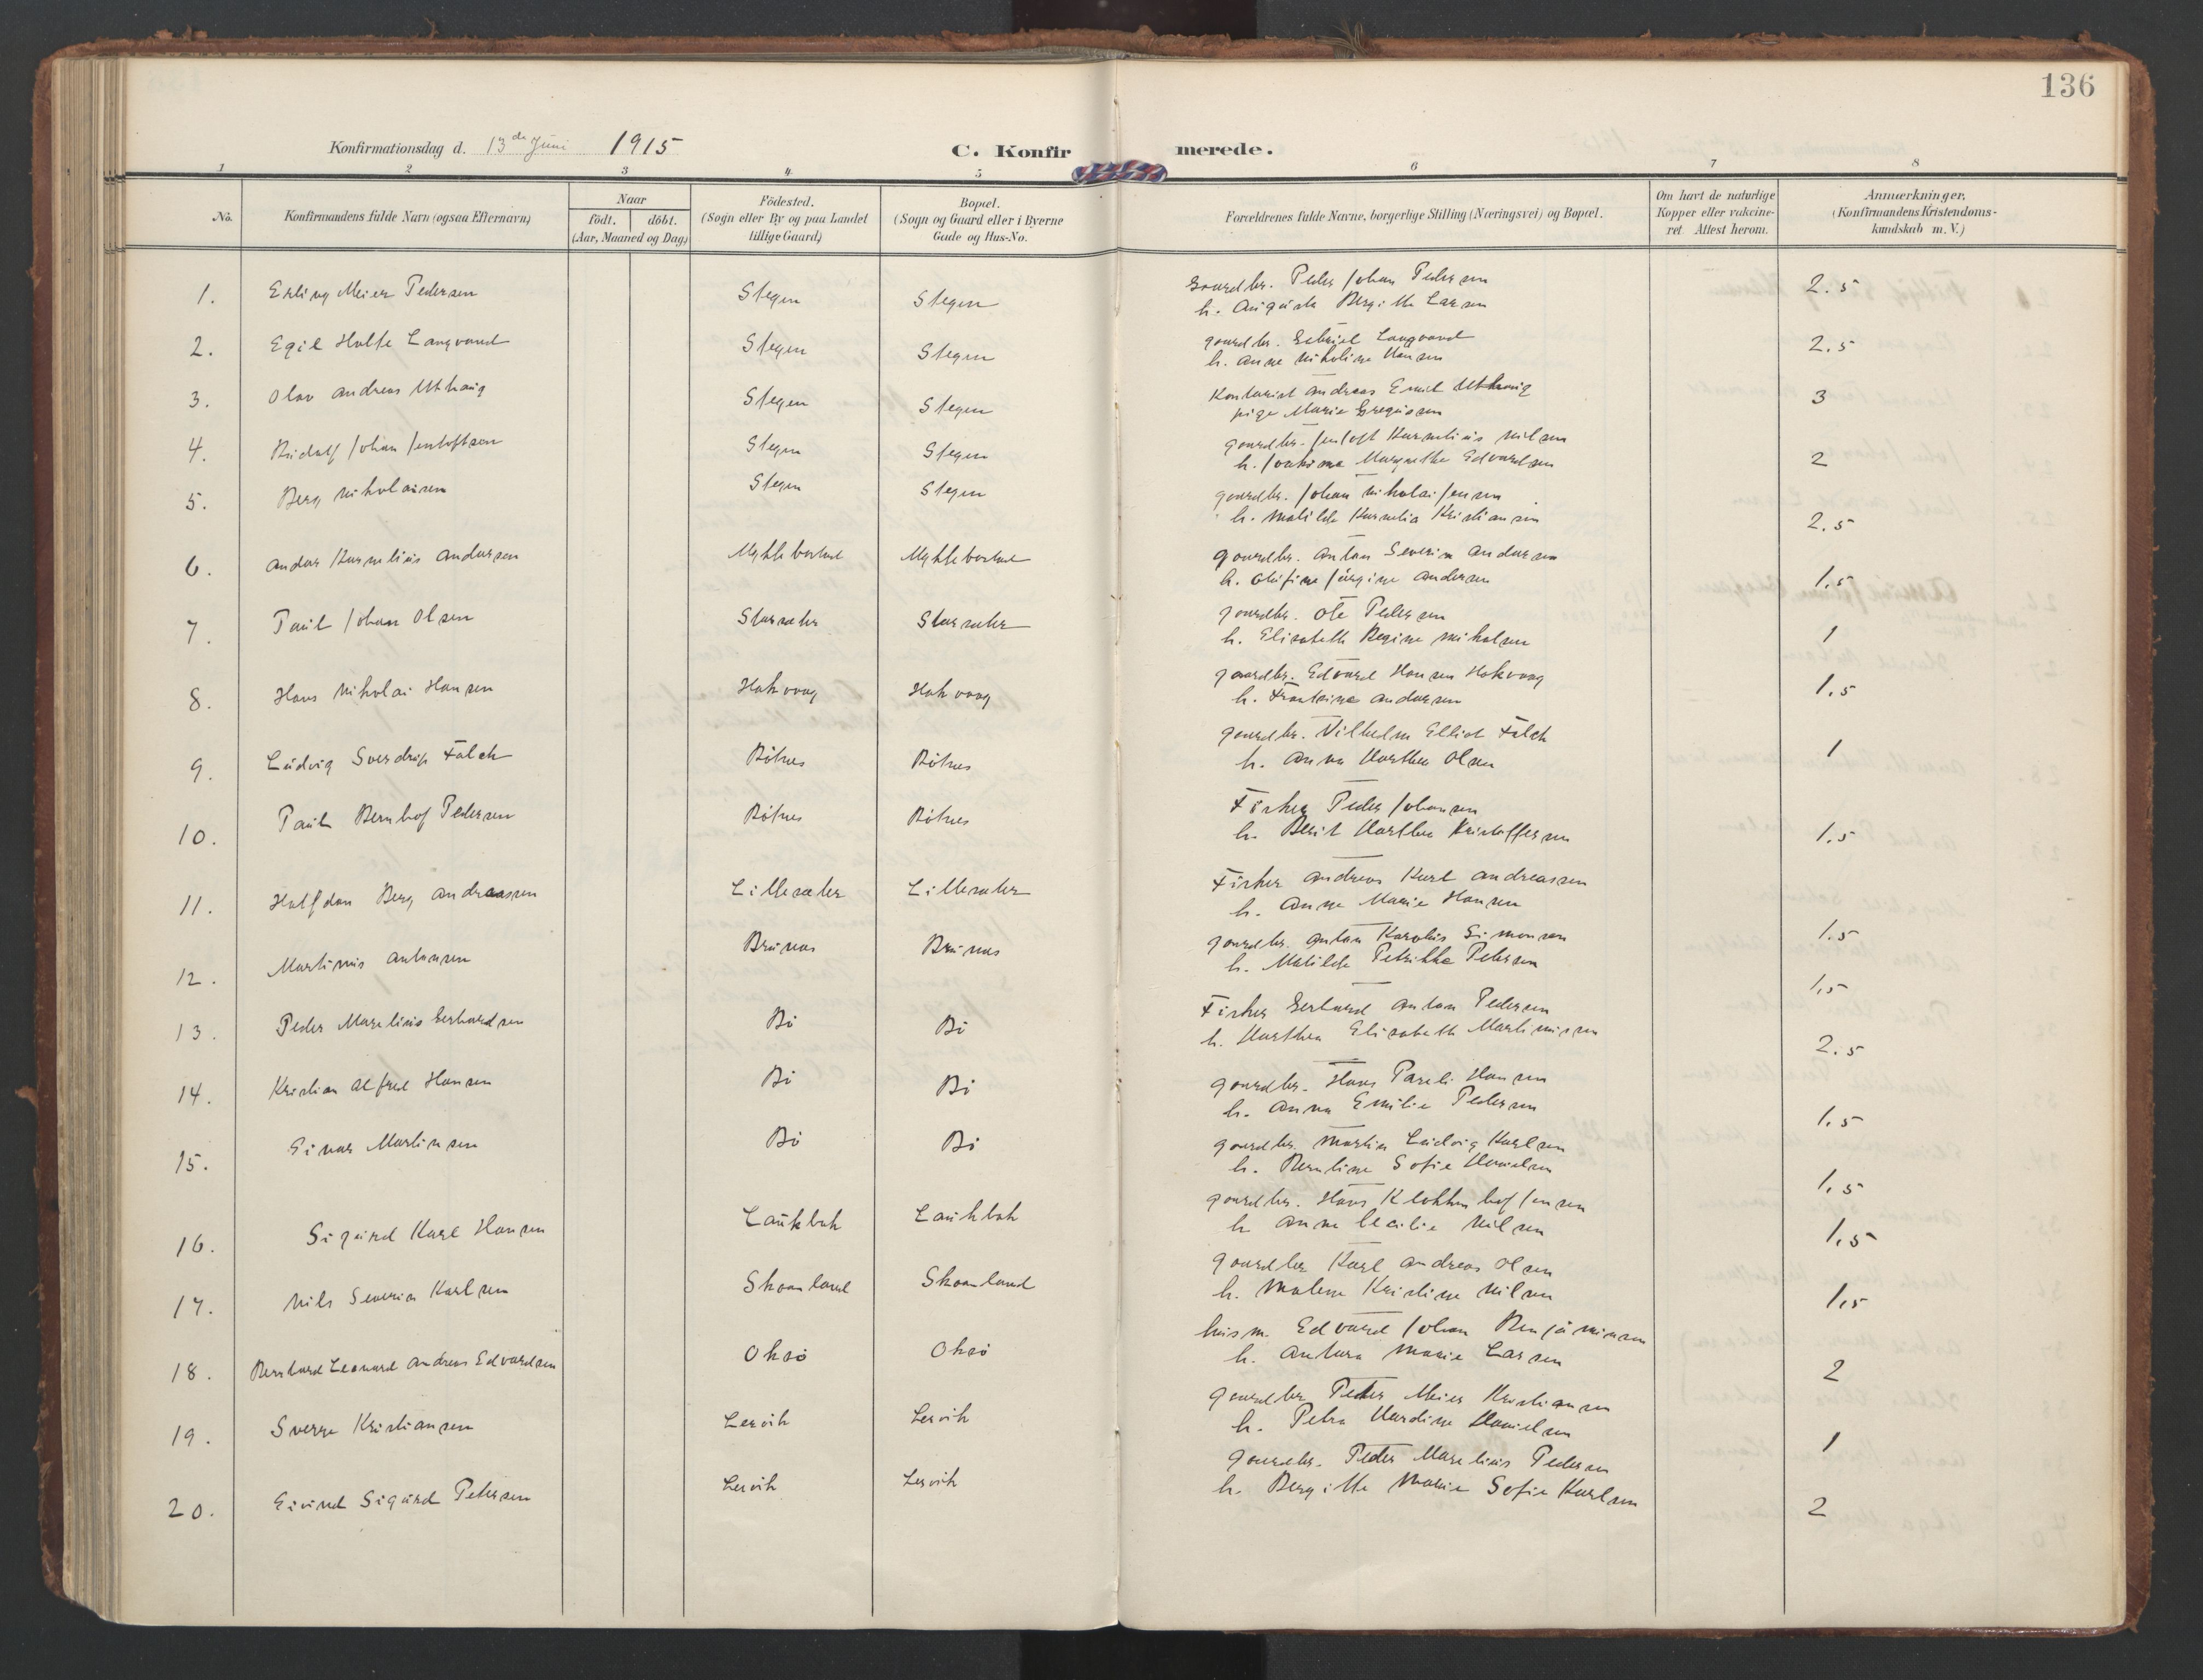 136
Konfirmationsdag d. 13de Juni 1915
C. Konfirmerede.
1 2 3 4 5 6 7 8
No. Konfirmandens fulde Navn (ogsaa Efternavn) Naar födt. döbt. (Aar, Maaned og Dag.) Födested. (Sogn eller By og paa Landet tillige Gaard) Bopæl. (Sogn og Gaard eller i Byerne Gade og Hus-No. Forældrenes fulde Navne, borgerlige Stilling (Næringsvei) og Bopæl. Om havt de naturlige Kopper eller vakcineret. Attest herom. Anmærkninger, (Konfirmandens Kristendomskundskab m. V.)
1. Erling Meier Pedersen Stegen Stegen Gaardbr. Peder Johan Pedersen 2.5
h. Augusta Bergitte Larsen
2. Egil Holte Langvand Stegen Stegen gaardbr. Gabriel Langvand 2.5
h. Anne Nikoline Hansen
3. Olav Andreas Uthaug Stegen Stegen Kontorist Andreas Emil Uthaug 3
pige Marie Gregusen
4. Rudolf Johan Jentoftsen Stegen Stegen gaardbr. Jentoft Kornelius Nilsen 2
h. Joakima Margrethe Edvardsen
5. Berg Nikolaisen Stegen Stegen gaardbr. Johan Nikolai Jensen 2.5
h. Matilde Kornelia Kristiansen
6. Andor Kornelius Andersen Myklebostad Myklebostad gaardbr. Anton Severin Andersen 1.5
h. Olufine Jørgine Andersen
7. Paul Johan Olsen Storsæter Storsæter gaardbr. Ole Pedersen 1
h. Elisabeth Regine
8. Hans Nikolai Hansen Hakvaag Hakvaag gaardbr. Edvard Hansen Hakvaag 1.5
h. Andersen
9. Ludvig Sverdrup Falch Bötnes Bötnes gaardbr. Vilhelm Elliot Falch 1
h. Anna Marthea Olsen
10. Paul Bernhof Pedersen Bötnes Bötnes Fisker Peder Johansen 1.5
h. Berit Marthea Kristoffersen
11. Halfdan Berg Andreassen Lillesæter Lillesæter Fisker Andreas Karl Andreassen 1.5
h. Anne Marie Hansen
12. Martinus Antonsen Brünes Brünes gaardbr. Anton Karolius Simonsen 1.5
h. Matilde Petrikka Petersen
13. Peder Marelius Gerhardsen Bö Bö Fisker Gerhard Anton Pedersen 2.5
h. Marthea Elisabeth Martinussen
14. Kristian Alfred Hansen Bö Bö gaardbr. Hans Pareli Hansen 1.5
h. Anna Emilie Pedersen
15. Einar Martinsen Bö Bö gaardbr. Martin Ludvig Karlsen 1.5
h. Berntine Sofie Danielsen
16. Sigurd Karl Hansen Laukbak Laukbak gaardbr. Hans Klokkerhof Jensen 1,5
h. Anna Cecilie Nilsen
17. Nils Severin Karlsen Skaanland Skaanland gaardbr Karl Andreas Olsen 1,5
h. Malene Kristine Nilsen
18. Bernhard Leonard Andreas Edvardsen Oksö Oksö husm. Edvard Johan Benjaminsen 2
h. Antora Marie Larsen
19. Sverre Kristiansen Lervik Lervik gaardbr Peder Meier Kristiansen 1
h. Petra Hardine Danielsen
20. Eivind Sigurd Petersen Lervik Lervik gaardbr. Peder Marelius Pedersen 2
h. Bergitte Marie Sofie Karlsen